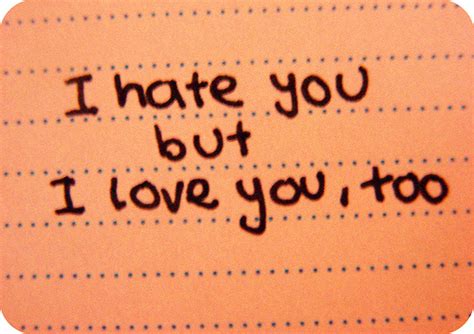 I hate you
but
I love you, too